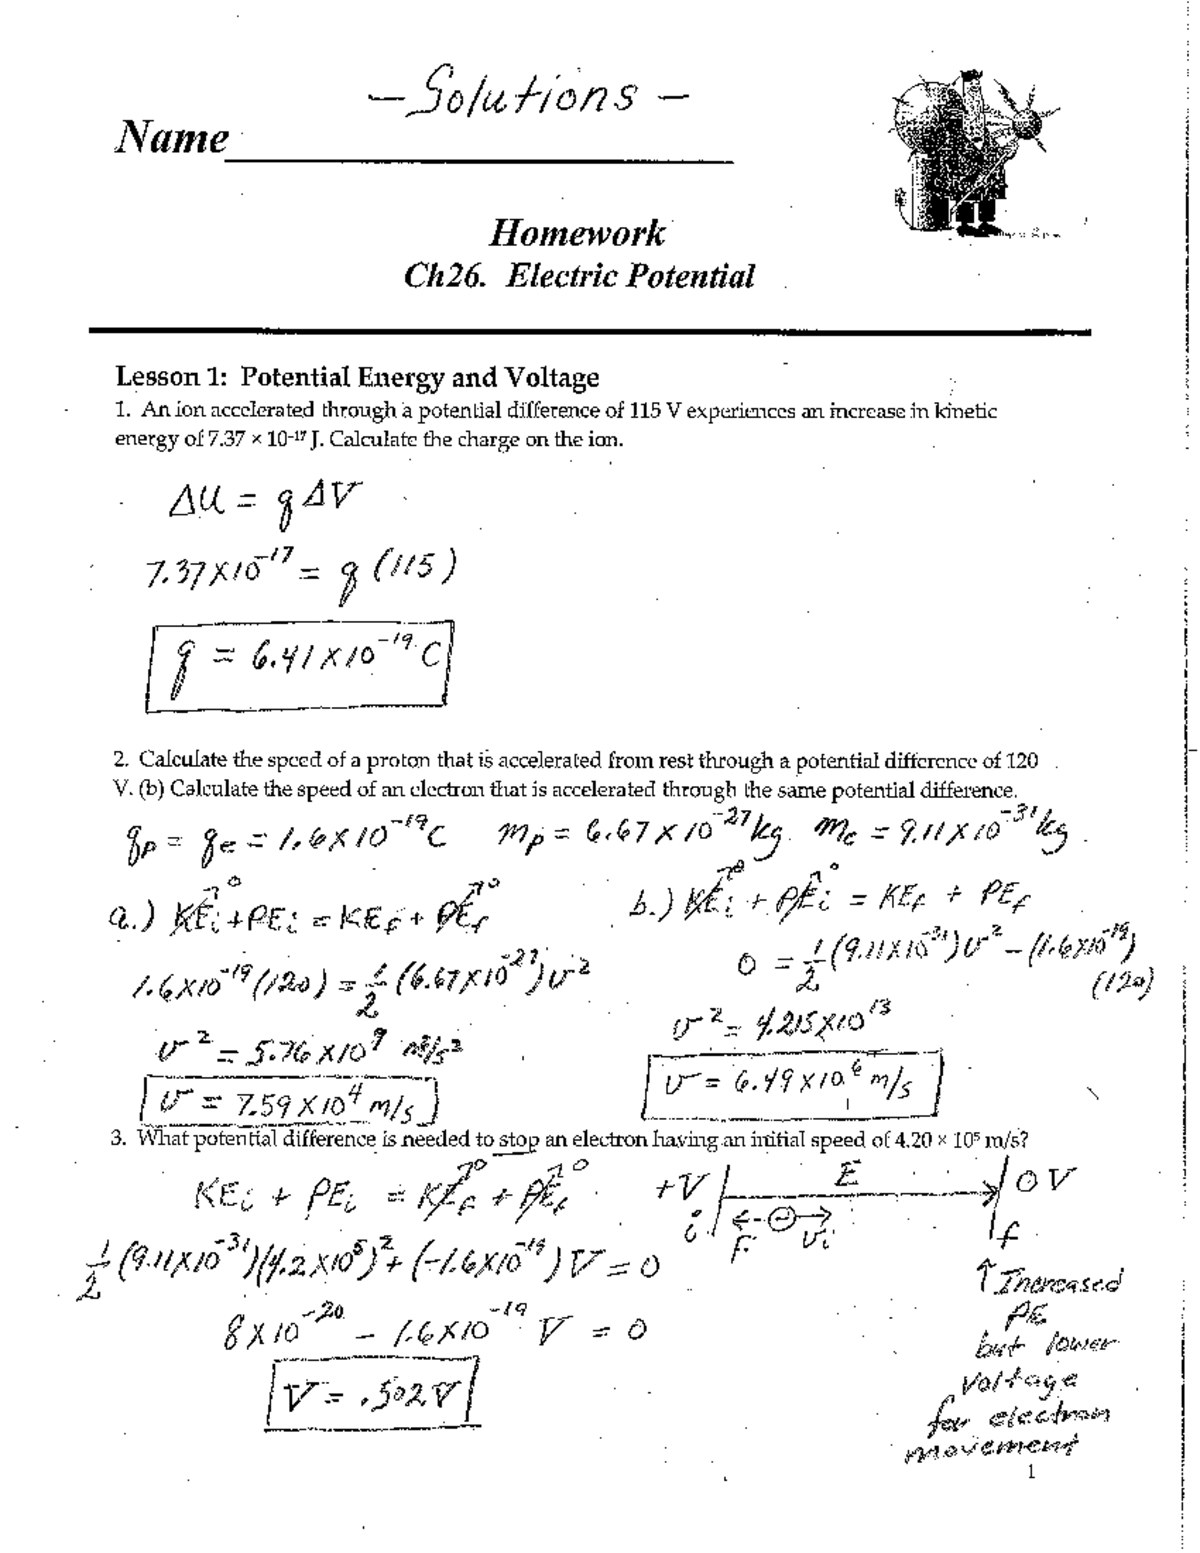 - Solutions -
Name
Homework
Ch26. Electric Potential
Lesson 1: Potential Energy and Voltage
1. An ion accelerated through a potential difference of 115 V experiences an increase in kinetic
energy of 7.37 × 10⁻¹⁷ J. Calculate the charge on the ion.
ΔU = qΔV
7.37×10⁻¹⁷ = q (115)
q = 6.41×10⁻¹⁹ C
2. Calculate the speed of a proton that is accelerated from rest through a potential difference of 120
V. (b) Calculate the speed of an electron that is accelerated through the same potential difference.
qp = qe = 1.6×10⁻¹⁹ C mp = 6.67×10⁻²⁷ kg me = 9.11×10⁻³¹ kg
a.) KEi⁰ + PEi = KEf + PEf⁰
1.6×10⁻¹⁹ (120) = 1/2 (6.67×10⁻²⁷) v²
v² = 5.76×10⁹ m²/s²
v = 7.59×10⁴ m/s
b.) KEi⁰ + PEi⁰ = KEf + PEf
0 = 1/2 (9.11×10⁻³¹) v² - (1.6×10⁻¹⁹)
(120)
v² = 4.215×10¹³
v = 6.49×10⁶ m/s
3. What potential difference is needed to stop an electron having an initial speed of 4.20 × 10⁵ m/s?
KEi + PEi = KEf⁰ + PEf⁰
1/2 (9.11×10⁻³¹)(4.2×10⁵)² + (-1.6×10⁻¹⁹) V = 0
8×10⁻²⁰ - 1.6×10⁻¹⁹ V = 0
V = .502 V
+V E 0 V
i F - vi f
↑ Increased
PE
but lower
voltage
for electron
movement
1